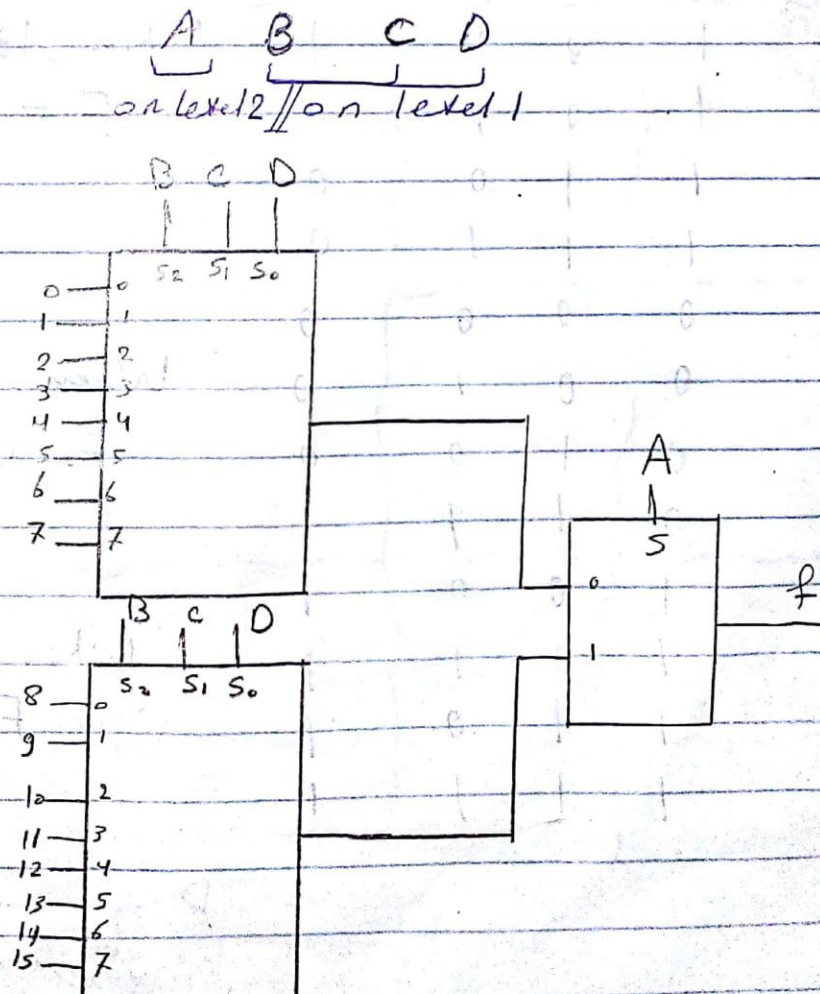 A B C D
on level 2 // on level 1
B C D
S2 S1 S0
0 0
1 1
2 2
3 3
4 4
5 5
6 6
7 7
A
S
0
f
1
B C D
S2 S1 S0
8 0
9 1
10 2
11 3
12 4
13 5
14 6
15 7